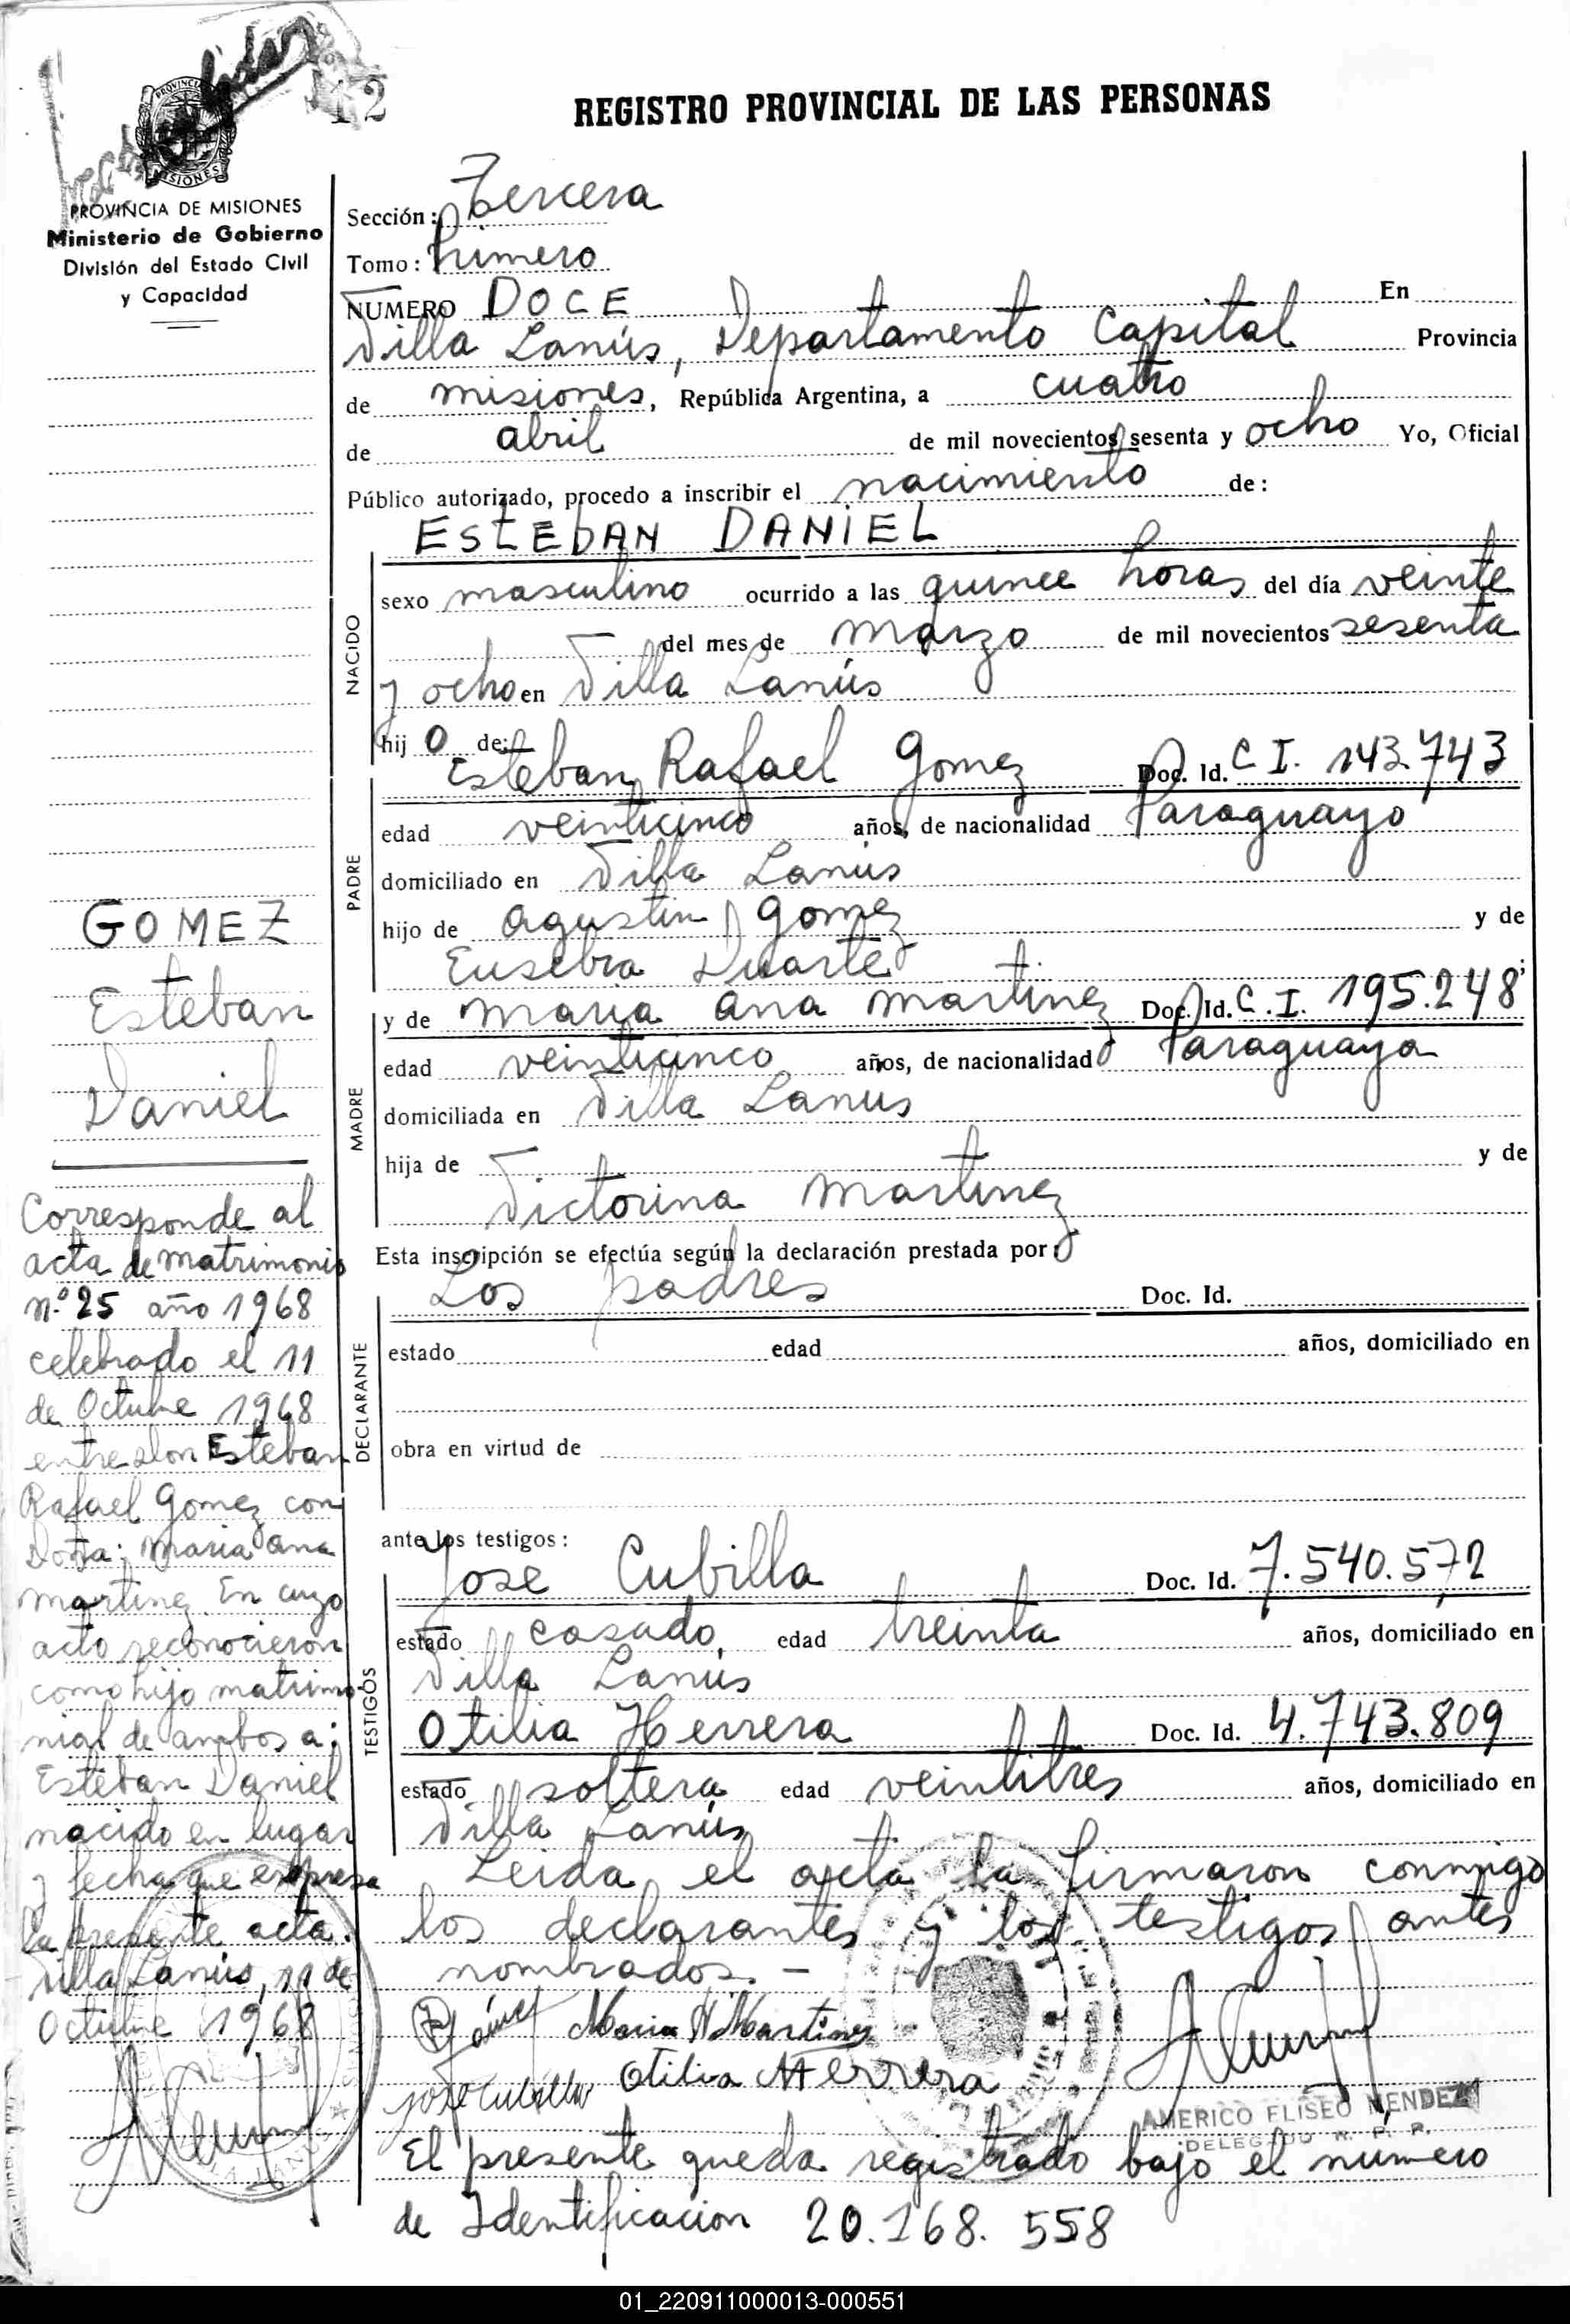 REGISTRO PROVINCIAL DE LAS PERSONAS
PROVINCIA DE MISIONES
Ministerio de Gobierno
División del Estado Civil
y Capacidad
Sección: Tercera
Tomo: Primero
NUMERO DOCE En
Villa Lanús, Departamento Capital Provincia
de misiones, República Argentina, a cuatro
de abril de mil novecientos sesenta y ocho Yo, Oficial
Público autorizado, procedo a inscribir el nacimiento de:
ESTEBAN DANIEL
NACIDO
sexo masculino ocurrido a las quince horas del día veinte
del mes de marzo de mil novecientos sesenta
y ocho en Villa Lanús
hij o de:
PADRE
Esteban Rafael Gomez Doc. Id. C I. 143.743
edad veinticinco años, de nacionalidad Paraguayo
domiciliado en Villa Lanús
hijo de Agustin Gomez y de
Eusebia Duarte
MADRE
y de Maria Ana Martinez Doc. Id. C.I. 195.248
edad veinticinco años, de nacionalidad Paraguaya
domiciliada en Villa Lanus
hija de y de
Victorina Martinez
Esta inscripción se efectúa según la declaración prestada por:
DECLARANTE
Los padres Doc. Id.
estado edad años, domiciliado en
obra en virtud de
ante los testigos:
TESTIGOS
Jose Cubilla Doc. Id. 7.540.572
estado casado, edad treinta años, domiciliado en
Villa Lanús
Otilia Herrera Doc. Id. 4.743.809
estado soltera edad veintitres años, domiciliado en
Villa Lanús
Leida el acta la firmaron conmigo
los declarantes y los testigos antes
nombrados. -
Maria A Martinez
Jose Cubilla Otilia Herrera
AMERICO ELISEO MENDEZ
DELEGADO R. P. P.
El presente queda registrado bajo el número
de Identificacion 20.168.558
GOMEZ
Esteban
Daniel
Corresponde al
acta de matrimonio
n.º 25 año 1968
celebrado el 11
de Octubre 1968
entre don Esteban
Rafael Gomez con
Doña: Maria Ana
Martinez. En cuyo
acto reconocieron
como hijo matrimo-
nial de ambos a:
Esteban Daniel
nacido en lugar
y fecha que expresa
la presente acta.
Villa Lanús, 11 de
Octubre 1968
01_220911000013-000551